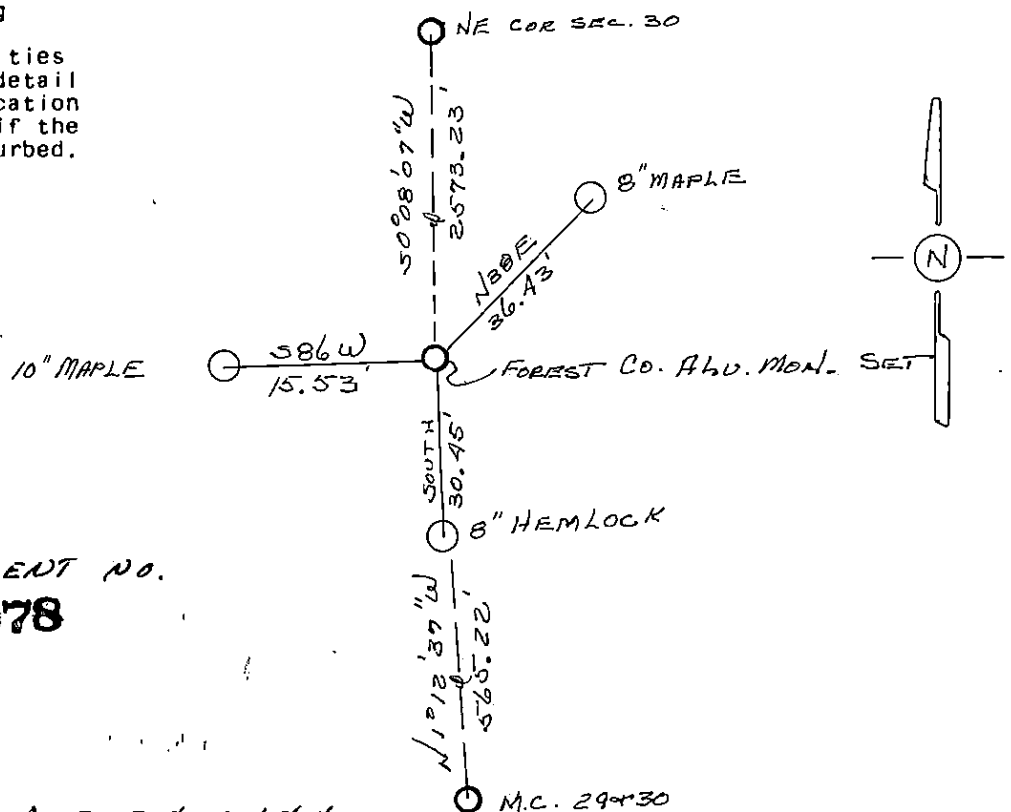 NE COR SEC. 30
ties
detail
cation
if the
urbed.
S0°08'07"W
2573.23'
8" MAPLE
N38E
36.43'
N
10" MAPLE
S86W
15.53'
FOREST CO. ALU. MON. SET
SOUTH
30.45'
8" HEMLOCK
ENT NO.
78
N1°12'37"W
565.22'
M.C. 29&30